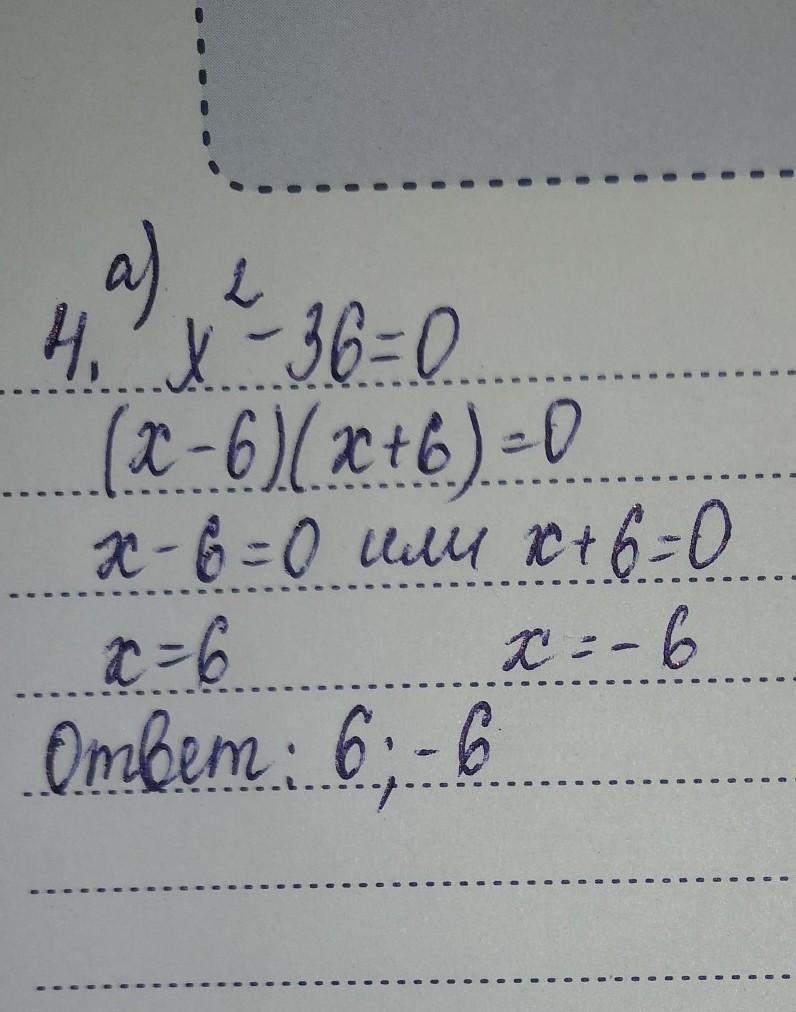 а)
4. x² - 36 = 0
(x - 6)(x + 6) = 0
x - 6 = 0 или x + 6 = 0
x = 6 x = - 6
Ответ: 6; - 6